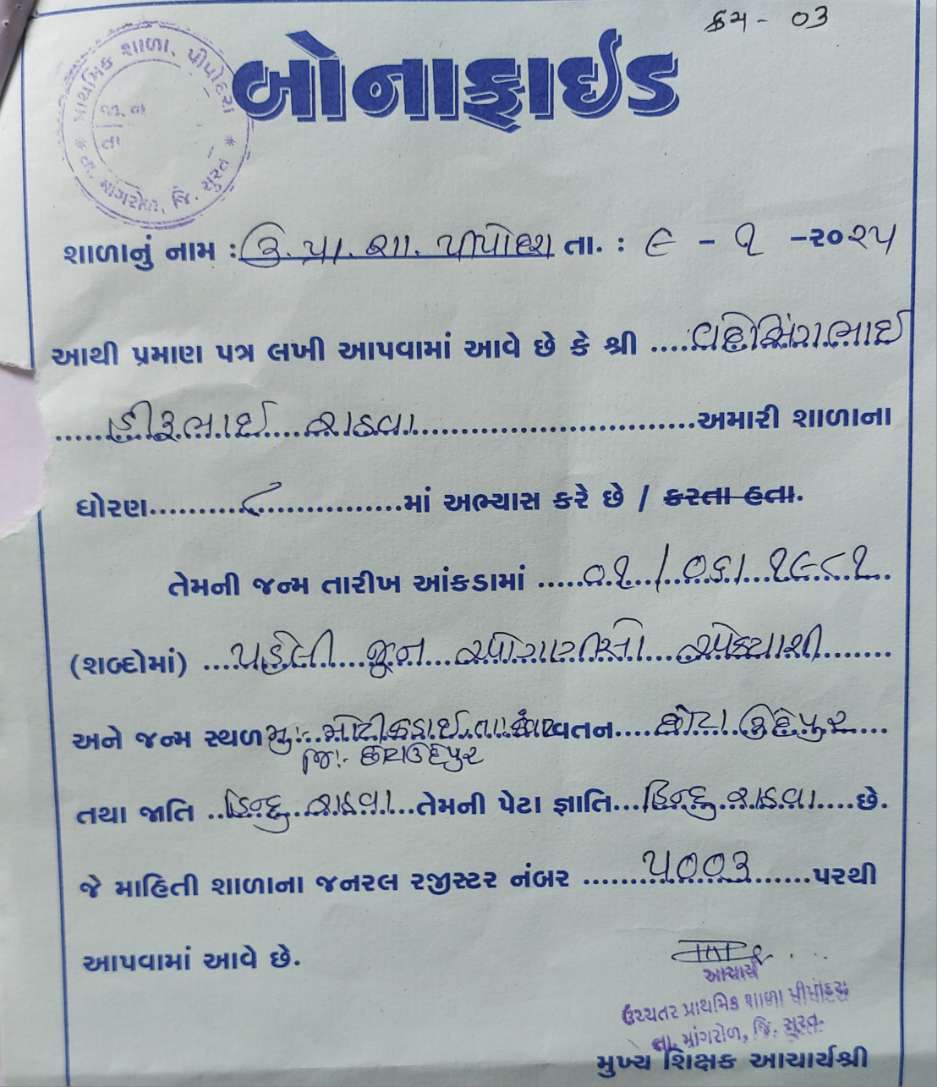 ક્રમ - 03
પ્રાથમિક શાળા, પીપોદરા
તા. માંગરોળ, જિ. સુરત
બોનાફાઈડ
શાળાનું નામ : ઉ. પ્રા. શા. પીપોદરા તા. : ૯ - ૧ -૨૦૨૫
આથી પ્રમાણ પત્ર લખી આપવામાં આવે છે કે શ્રી ....
.....હીરૂભાઈ...રાઠવા.............................અમારી શાળાના
ધોરણ.........૮...............માં અભ્યાસ કરે છે / કરતા હતા.
તેમની જન્મ તારીખ આંકડામાં .....૦૧/૦૬/૧૯૮૧..
(શબ્દોમાં) ...પહેલી...જૂન...ઓગણીસો...એક્યાશી.......
અને જન્મ સ્થળ મુ:. તા વતન....છોટા ઉદેપુર...
જિ:- છોટાઉદેપુર
તથા જાતિ ..હિન્દુ રાઠવા...તેમની પેટા જ્ઞાતિ...હિન્દુ રાઠવા....છે.
જે માહિતી શાળાના જનરલ રજીસ્ટર નંબર ......૫૦૦૩......પરથી
આપવામાં આવે છે.
આચાર્ય
ઉચ્ચતર પ્રાથમિક શાળા પીપોદરા
તા. માંગરોળ, જિ. સુરત.
મુખ્ય શિક્ષક આચાર્યશ્રી